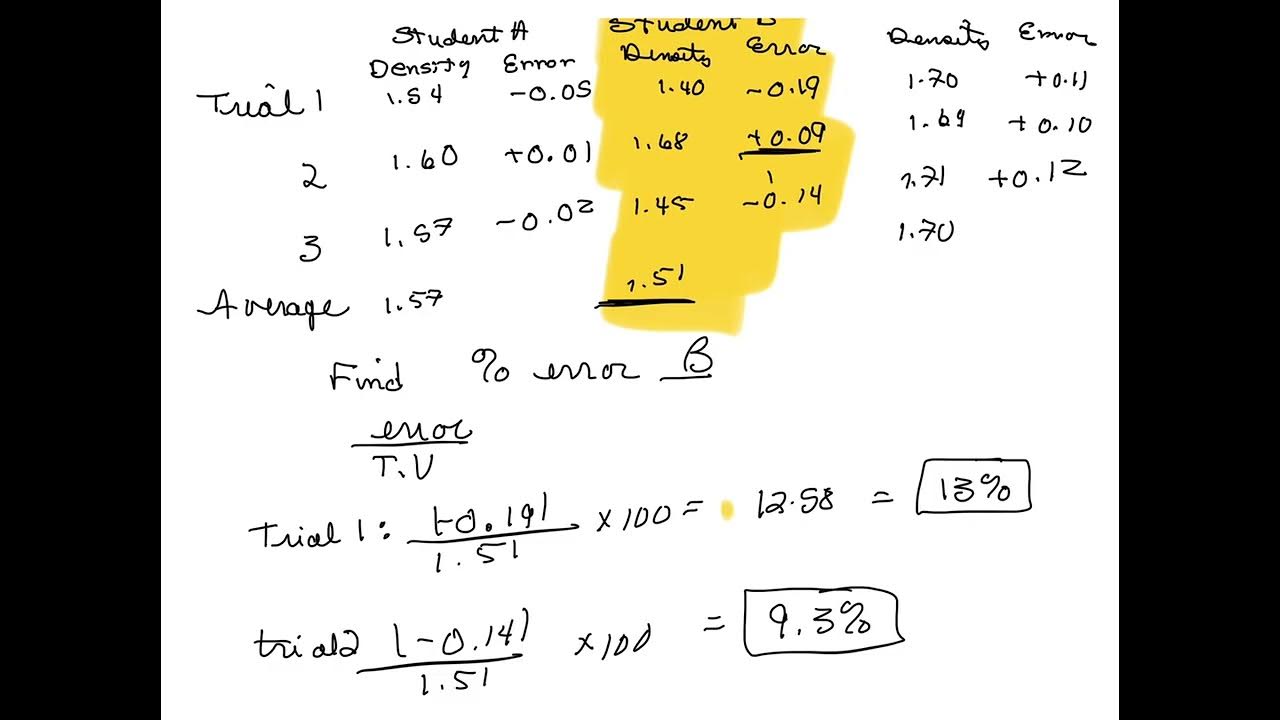 Student A Student B
Density Error Density Error Density Error
Trial 1 1.54 -0.05 1.40 -0.19 1.70 +0.11
2 1.60 +0.01 1.68 +0.09 1.69 +0.10
3 1.57 -0.02 1.45 -0.14 1.71 +0.12
Average 1.57 1.51 1.70
Find % error B
error
T.V
Trial 1: |-0.19| / 1.51 x100 = 12.58 = 13%
trial2 |-0.14| / 1.51 x100 = 9.3%